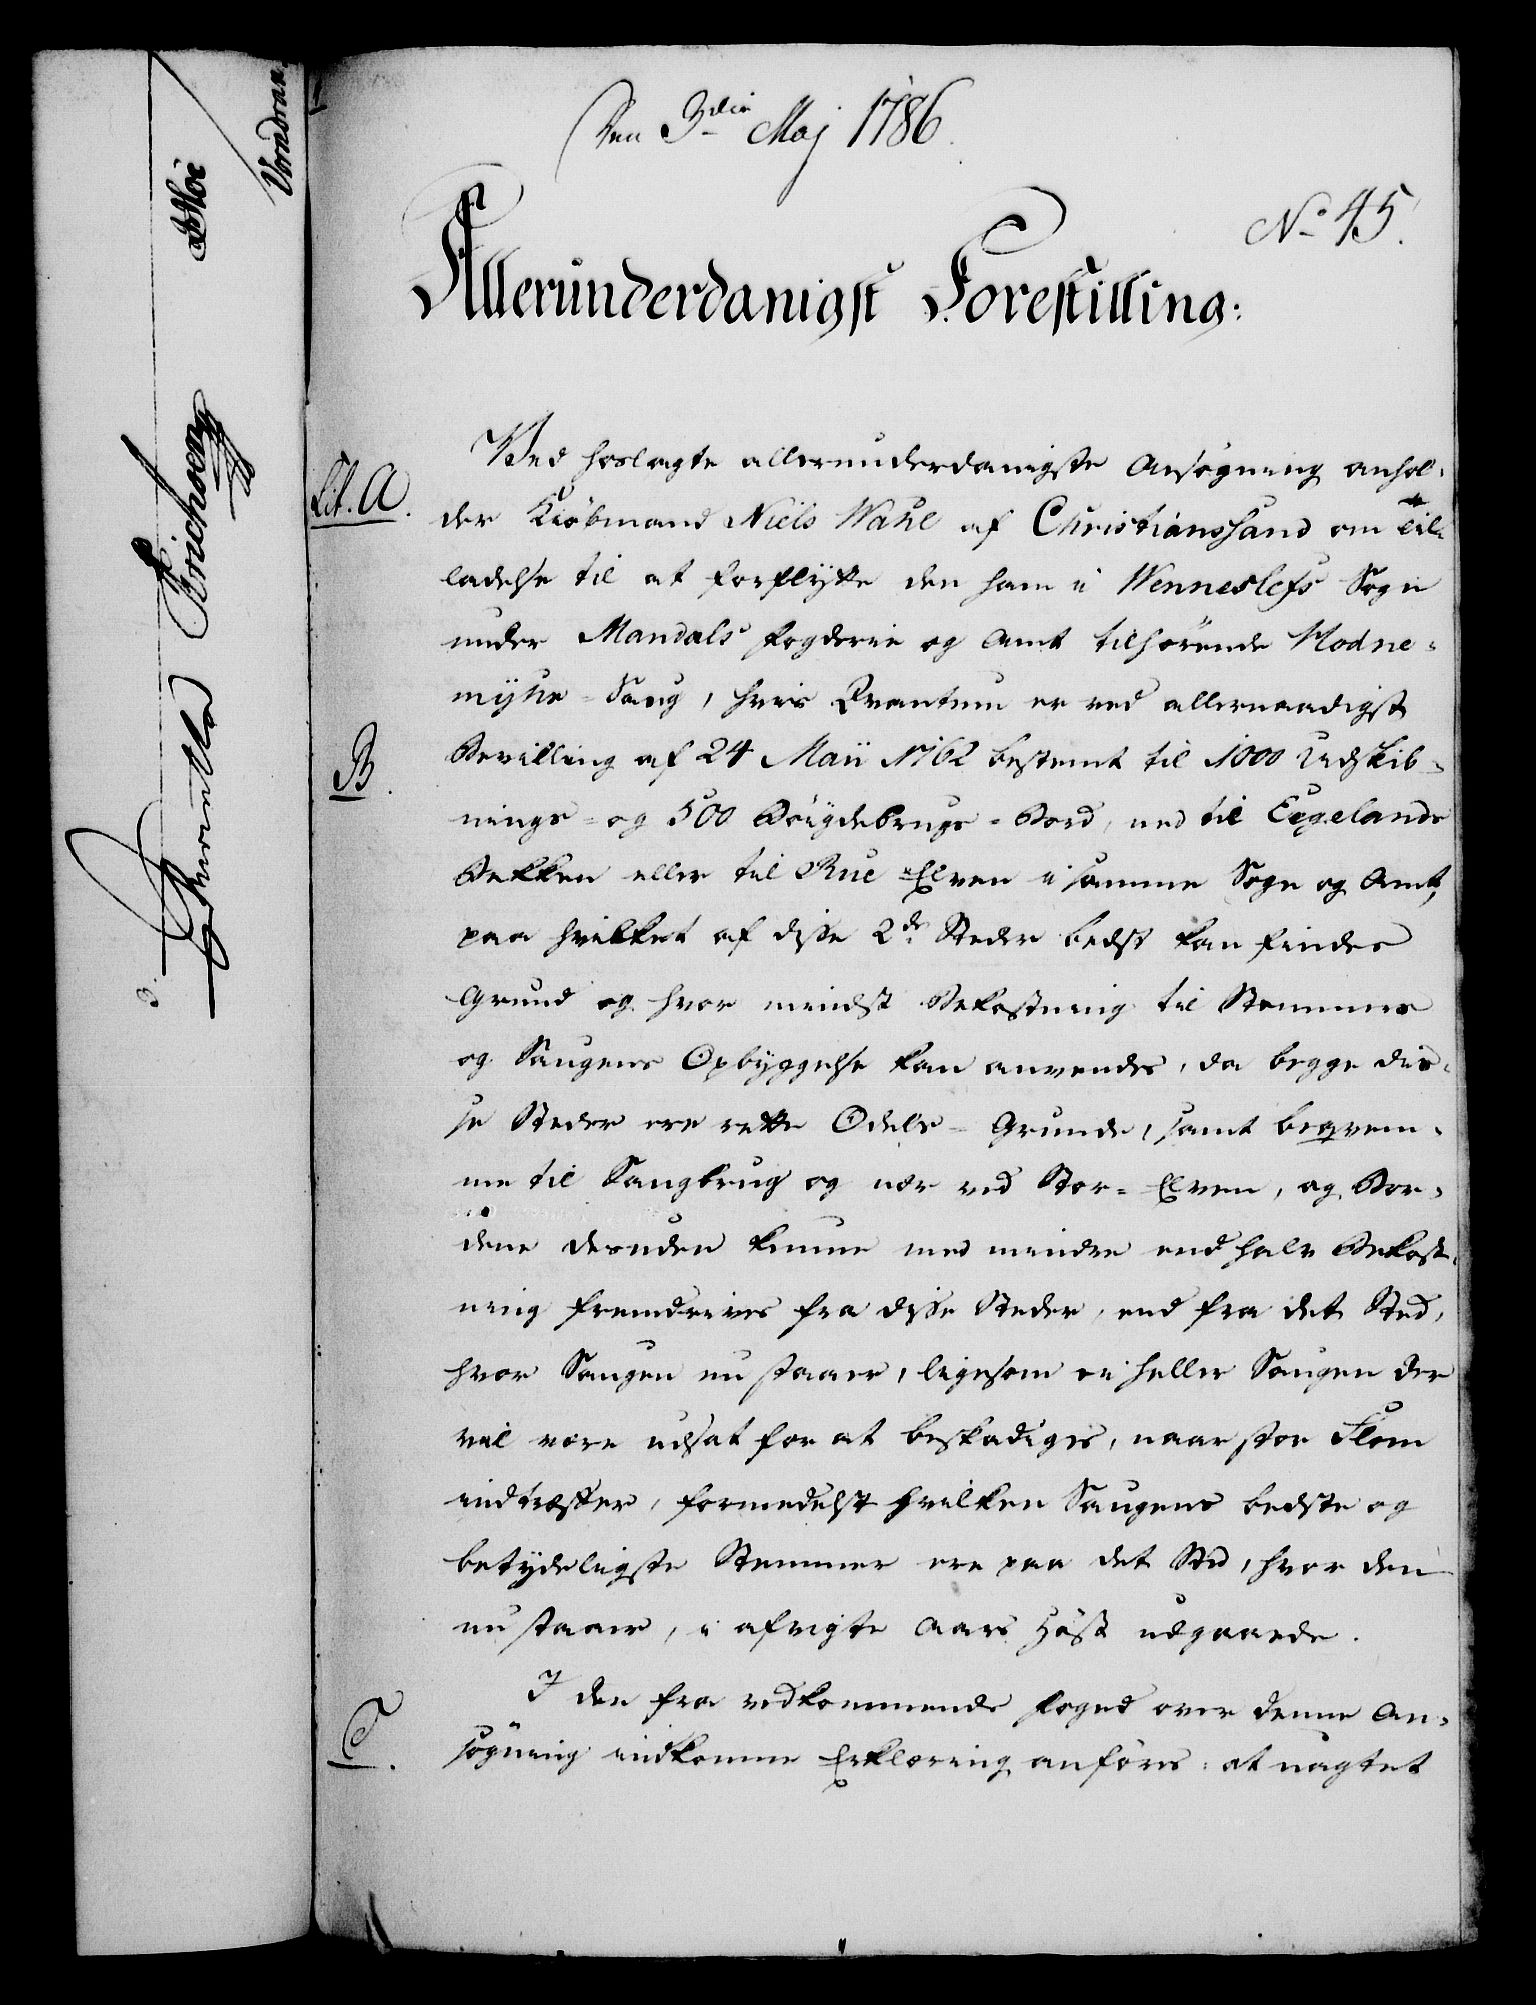 Den 3die Maj 1786.
No 45.
Allerunderdanigst Forestilling:
Lit. A.
Ved hoslagte allerunderdanigste Ansøgning anhol-
der Kiöbmand Niels Wahl af Christianssand om til-
ladelse til at forflytte den ham i Wenneslefs Sogn
under Mandals Fogderie og Amt tilhörende Modne-
myhr-Saug, hvis Qvantum er ved allernaadigst
B.
Bevilling af 24 Maii 1762 bestemt til 1000 Udskib-
nings- og 500 Böigdebrugs-Bord, ned til Eegelands
Bekken eller til Rue Elven i samme Sogn og Amt,
paa hvilket af disse 2de Steder bedst kan findes
Grund og hvor mindst Bekostning til Stemmer
og Saugens Opbyggelse kan anvendes, da begge dis-
se Steder ere rette Odels-Grunde, samt beqvem-
me til Saugbrug og nær ved Stor-Elven, og Bor-
dene desuden kunne med mindre end halv Bekost-
ning fremdrives fra disse Steder, end fra det Sted,
hvor Saugen nu staaer, ligesom ei heller Saugen der
vil være udsat for at beskadiges, naar stor Flom
indtræffer, formedelst hvilken Saugens bedste og
betydeligste Stemmer ere paa det Sted, hvor den
nu staaer, i afvigte Aars Höst udgaaede.
C.
I den fra vedkommende Foged over denne An-
søgning indkomne Erklæring anföres: at uagtet
Erichsen